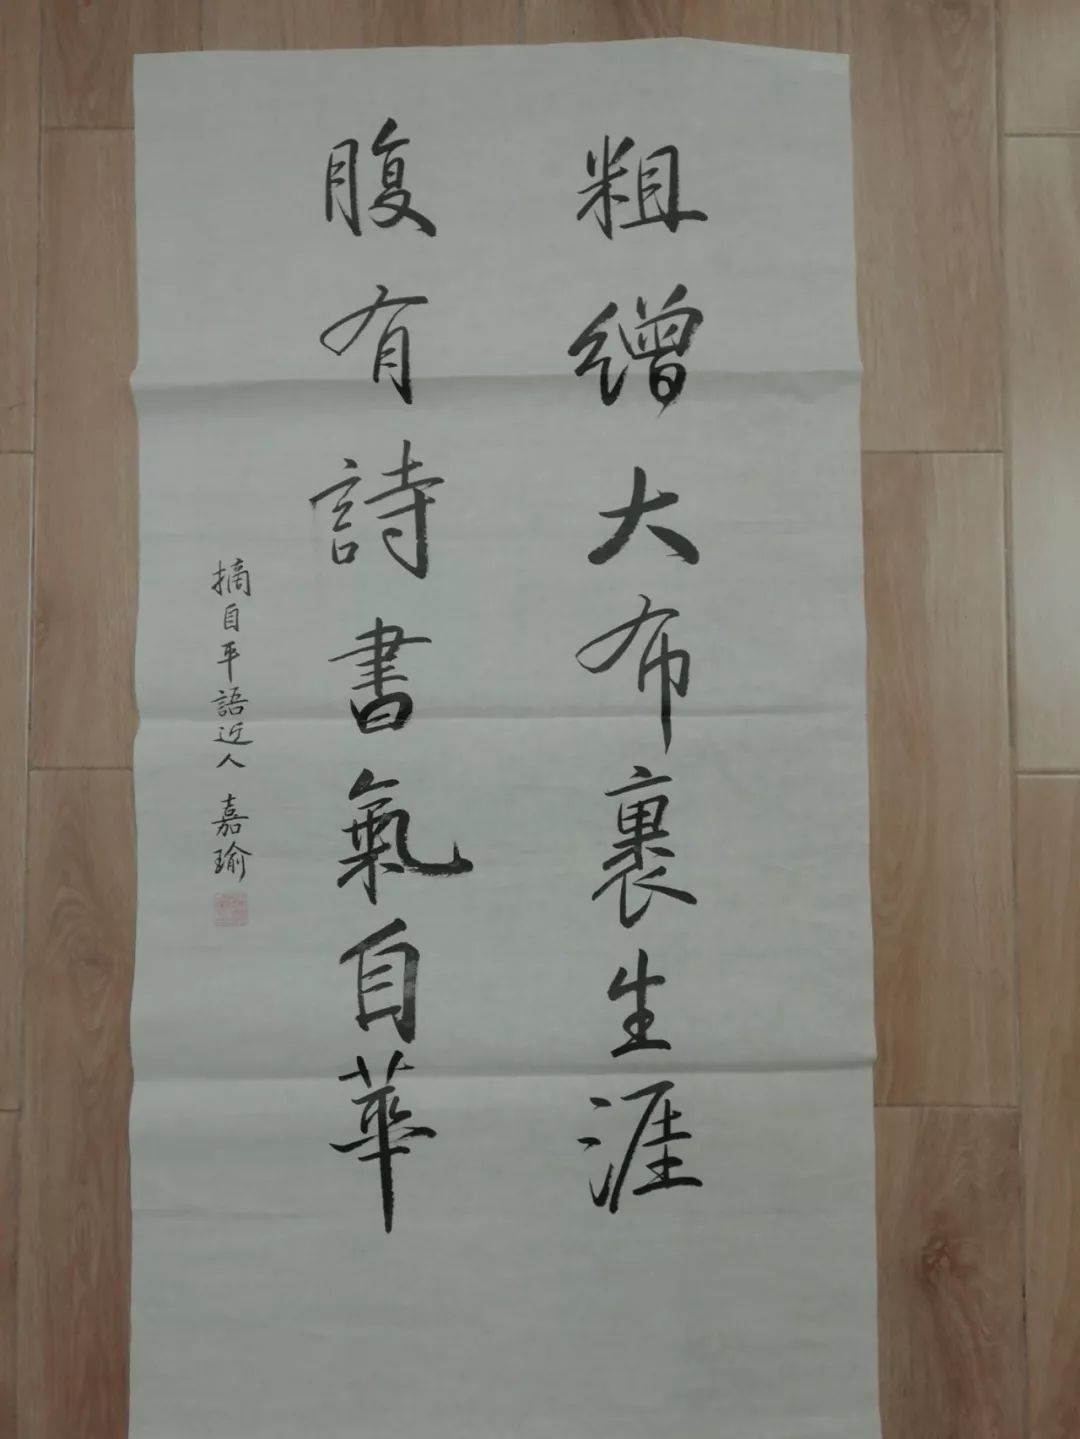 粗繒大布裹生涯
腹有詩書氣自華
摘自平語近人 嘉瑜